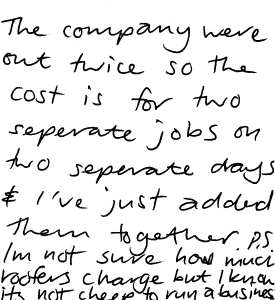 The company were
out twice so the
cost is for two
seperate jobs on
two seperate days
& I've just added
them together. P.S.
I'm not sure how much
roofers charge but I know
it's not cheep to run a business